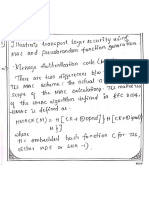 Illustrate transport layer security using
MAC and pseudorandom function generation
Message Authentication code (
There are two differences b/w
TLS MAC scheme: the actual a
scope of the MAC calculation. TLS makes
of the HMAC algorithm defined in RFC 2104.
HMAC is defined as:
where
H = embedded hash function (for TLS,
either MD5 or SHA-1)